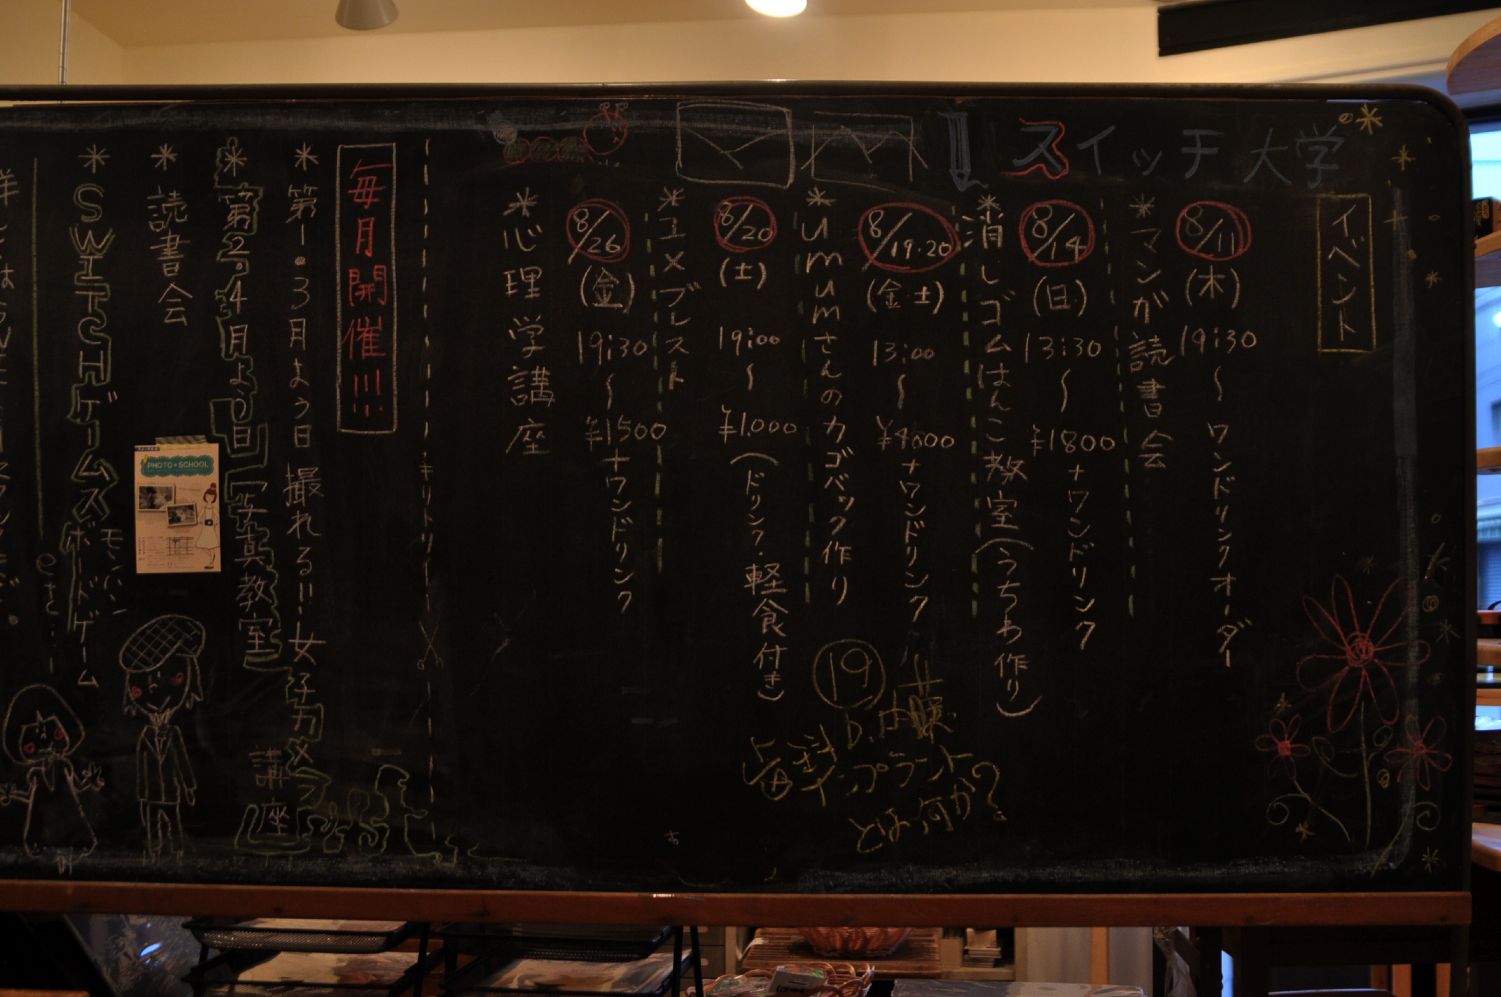 スイッチ大学
イベント
8/11(木)19:30〜ワンドリンクオーダー
*マンガ読書会
8/14(日)13:30〜¥1800+ワンドリンク
*消しゴムはんこ教室(うちわ作り)
8/19・20(金・土)13:00〜¥4000+ワンドリンク
*umumさんのカゴバック作り
8/20(土)19:00〜¥1,000(ドリンク・軽食付き)
*ユメブレスト
8/26(金)19:30〜¥1500+ワンドリンク
*心理学講座
19
歯科
インプラント
とは何か?
キリトリ
毎月開催!!!
*第1・3月よう日 撮れる!!女子カメラ
講座
*第2,4月よう日 写真教室
PHOTO SCHOOL
*読書会
*SWITCHゲームズボードゲーム